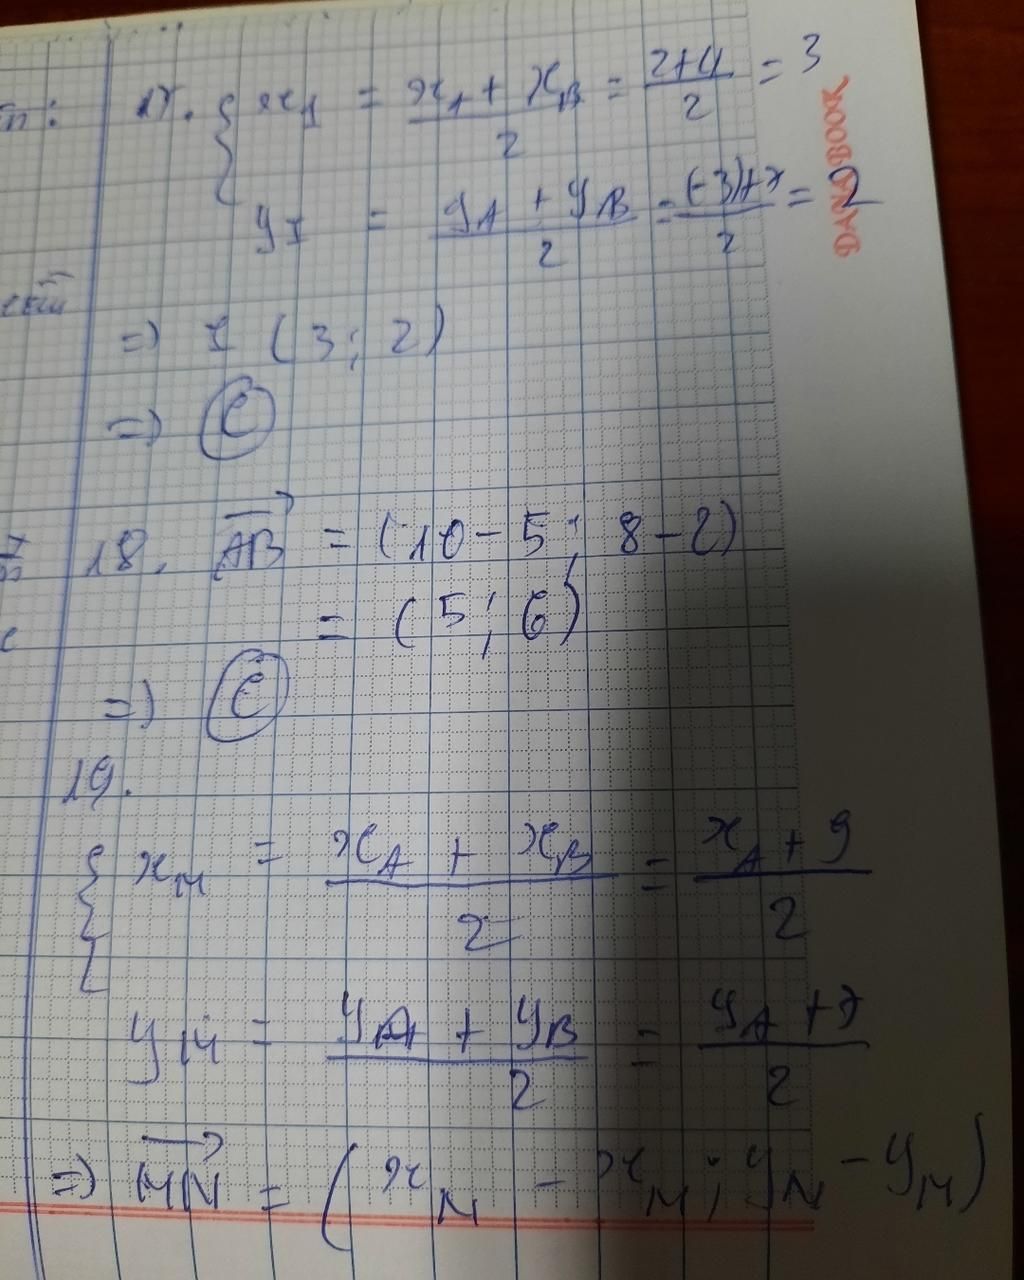 17. { x_I = (x_A + x_B)/2 = (2+4)/2 = 3
y_I = (y_A + y_B)/2 = ((-3)+7)/2 = 2
=> I (3; 2)
=> C
18. \overrightarrow{AB} = (10 - 5; 8 - 2)
= (5; 6)
=> C
19.
{ x_M = (x_A + x_B)/2 = (x_A + 9)/2
y_M = (y_A + y_B)/2 = (y_A + 7)/2
=> \overrightarrow{MN} = (x_N - x_M; y_N - y_M)